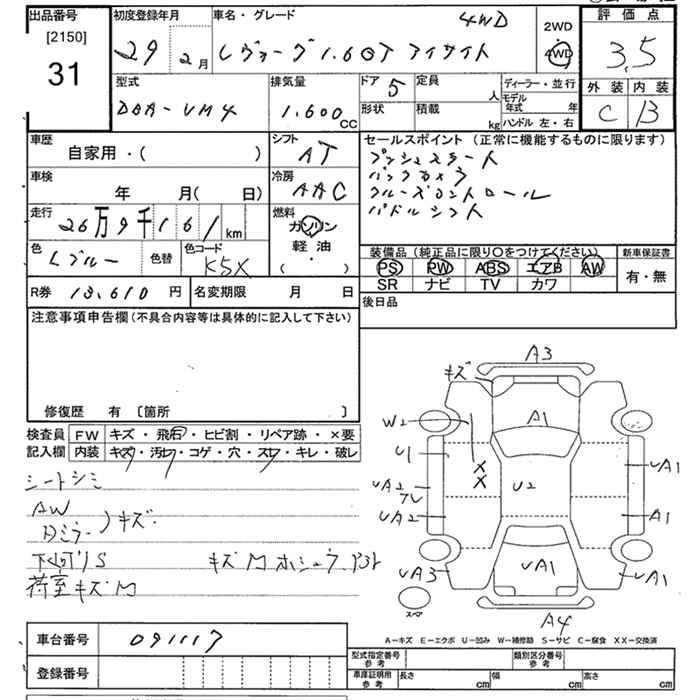 出品番号 初度登録年月 車名・グレード 4WD 2WD 評価点
[2150]
31
29 2月 レヴォーグ 1.6GT アイサイト 4WD 3.5
型式 排気量 ドア 5 定員 人 ディーラー・並行 外装 内装
DBA-VM4 1.600cc 形状 積載 kg モデル年式 年 C B
ハンドル 左・右
車歴 シフト セールスポイント (正常に機能するものに限ります)
自家用・( ) AT プッシュスタート
車検 冷房 バックカメラ
年 月( 日) AAC クルーズコントロール
走行 26万9千161km 燃料 パドルシフト
ガソリン
軽油
( ・ )
色 Lブルー 色替 色コード K5X 装備品 (純正品に限り○をつけてください) 新車保証書
PS PW ABS エアB AW 有・無
SR ナビ TV カワ
R券 13,610円 名変期限 月 日 後日品
注意事項申告欄(不具合内容等は具体的に記入して下さい)
修復歴 有 [箇所 ]
検査員 FW キズ・飛石・ヒビ割・リペア跡・×要
記入欄 内装 キズ・汚レ・コゲ・穴・スレ・キレ・破レ
シートシミ
AW
Dミラー )キズ
下廻りS キズM
荷室キズM
A3
キズ
A1
W2
U1
X
X
U2
UA1
UA2
UA2
A1
UA1
UA3
UA1
スペア
A4
A-キズ E-エクボ U-凹み W-補修跡 S-サビ C-腐食 XX-交換済
車台番号 091117
登録番号
型式指定番号 参考 類別区分番号 参考
車庫証明用 参考 長さ cm 幅 cm 高さ cm